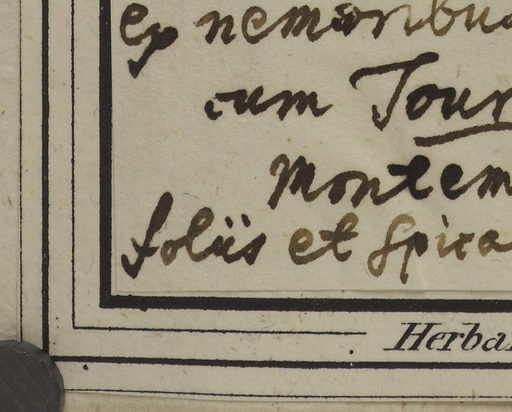 ex nemoribus
cum Tour
montem
foliis et spica
Herba